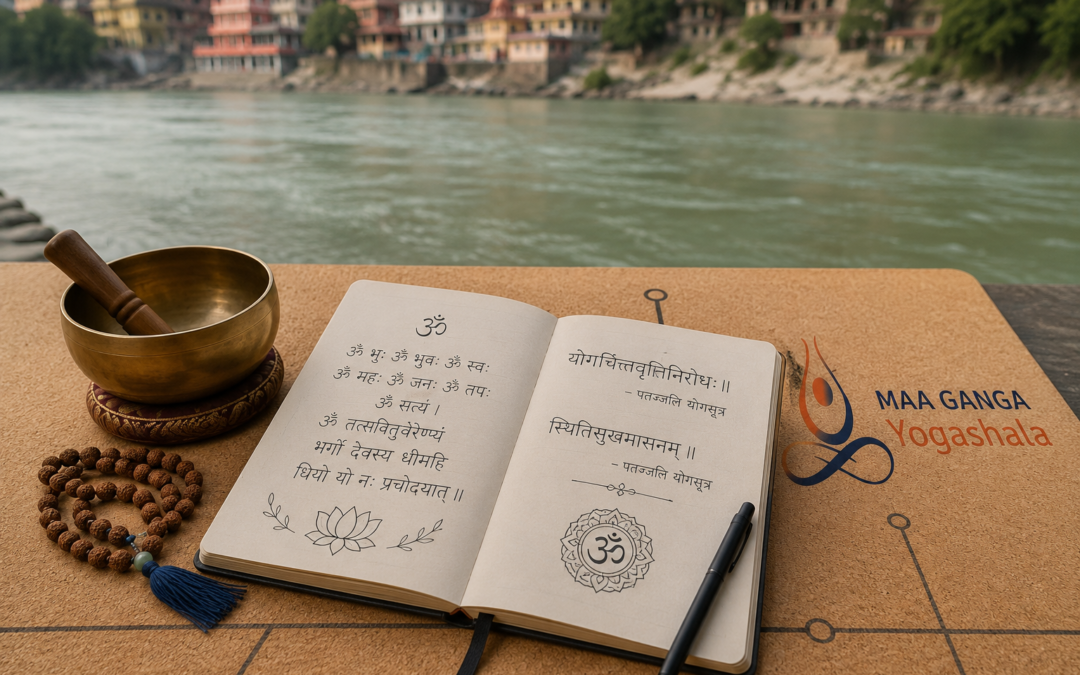 ॐ
ॐ भुः ॐ भुवः ॐ स्वः
ॐ महः ॐ जनः ॐ तपः
ॐ सत्यं ।
ॐ तत्सवितुवेरेण्यं
भर्गो देवस्य धीमहि
धियो यो नः प्रचोदयात् ॥
योगर्चित्तवृत्तिनिरोधः॥
– पतज्जलि योगसूत्र
स्थितिसुखमासनम् ॥
– पतज्जलि योगसूत्र
ॐ
MAA GANGA
Yogashala